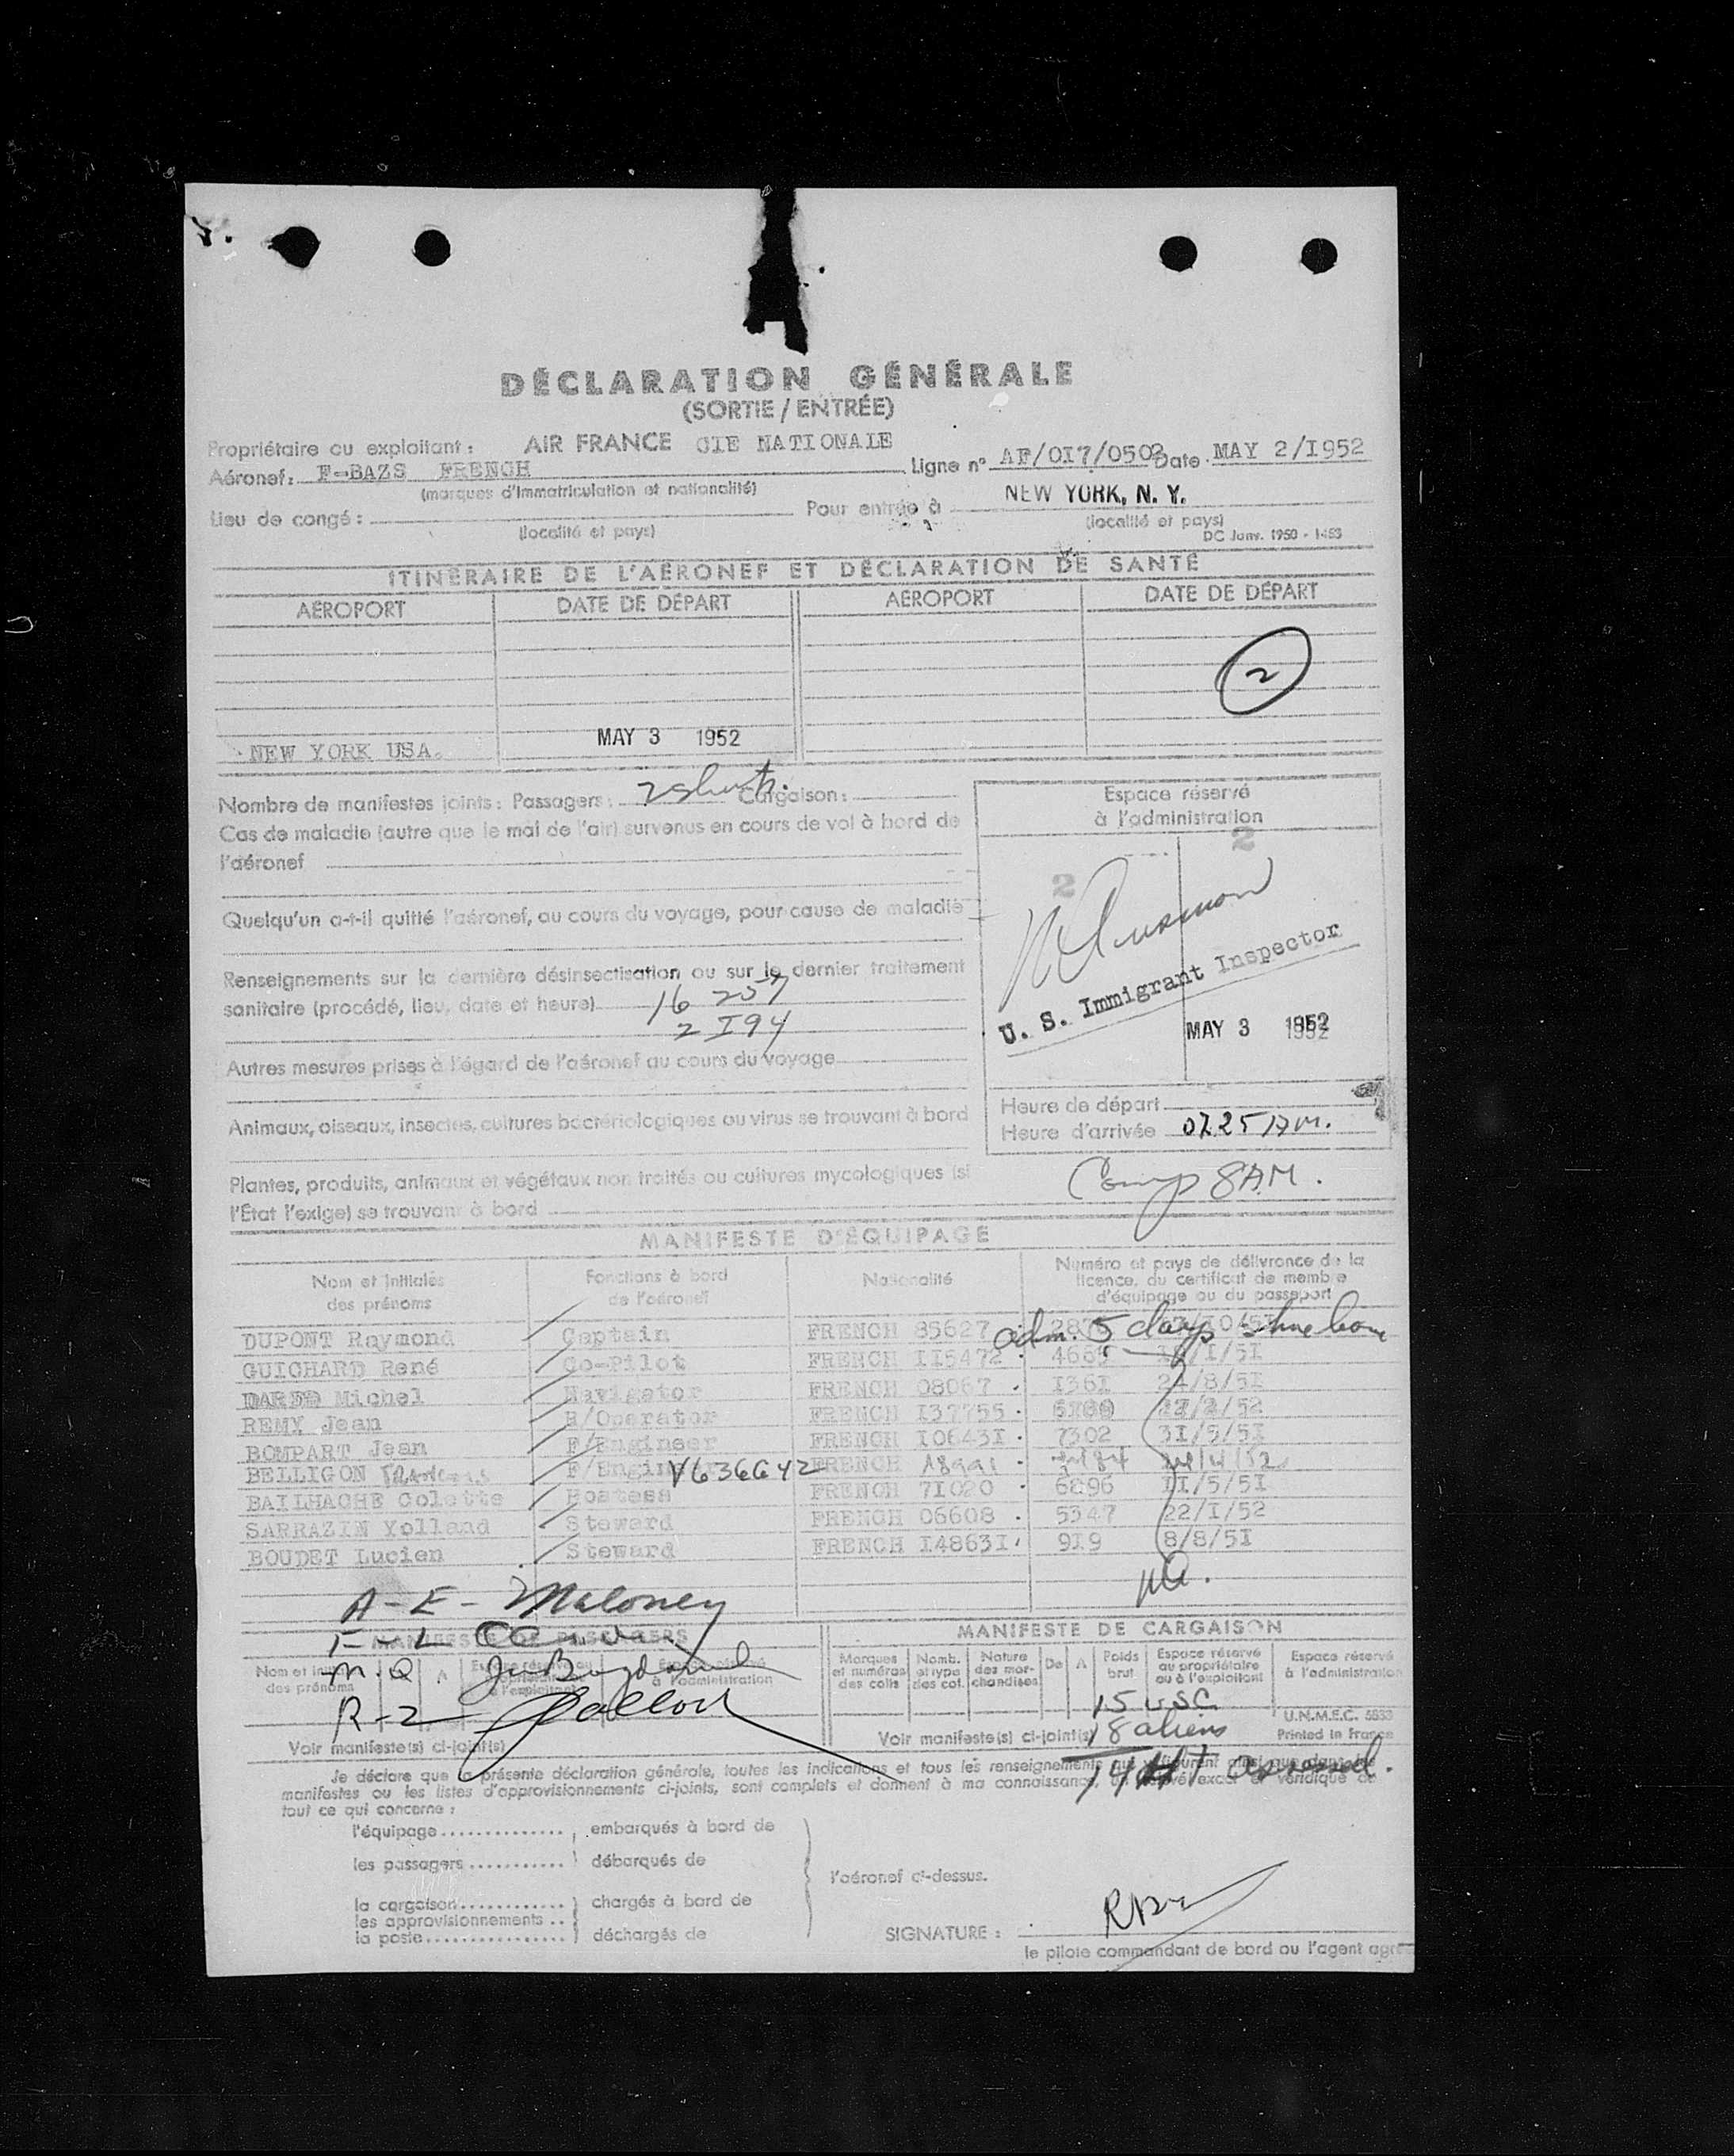 DÉCLARATION GÉNÉRALE
(SORTIE / ENTRÉE)
Propriétaire ou exploitant : AIR FRANCE CIE NATIONALE
Aéronef : F-BAZS FRENCH Ligne n° AF/OI7/0502 Date MAY 2/I952
(marques d'immatriculation et nationalité)
Lieu de congé : Pour entrée à NEW YORK, N. Y.
(localité et pays) (localité et pays)
DC Janv. 1950 - 1453
ITINÉRAIRE DE L'AÉRONEF ET DÉCLARATION DE SANTÉ
AÉROPORT DATE DE DÉPART AÉROPORT DATE DE DÉPART
2
NEW YORK USA. MAY 3 1952
Nombre de manifestes joints : Passagers : Cargaison :
Cas de maladie (autre que le mal de l'air) survenus en cours de vol à bord de
l'aéronef
Quelqu'un a-t-il quitté l'aéronef, au cours du voyage, pour cause de maladie
Renseignements sur la dernière désinsectisation ou sur le dernier traitement
sanitaire (procédé, lieu, date et heure) 16 257
2 I94
Autres mesures prises à l'égard de l'aéronef au cours du voyage
Animaux, oiseaux, insectes, cultures bactériologiques ou virus se trouvant à bord
Plantes, produits, animaux et végétaux non traités ou cultures mycologiques (si
l'État l'exige) se trouvant à bord
Espace réservé
à l'administration
2
2
U. S. Immigrant Inspector
MAY 3 1952
Heure de départ
Heure d'arrivée 0725 AM.
Comp 8 AM.
MANIFESTE D'ÉQUIPAGE
Nom et initiales des prénoms Fonctions à bord de l'aéronef Nationalité Numéro et pays de délivrance de la licence, du certificat de membre d'équipage ou du passeport
adm. 5 days
DUPONT Raymond Captain FRENCH 85627
GUICHARD René Co-Pilot FRENCH II5472 I/5I
Michel Navigator FRENCH 08067 I36I 24/8/5I
REMY Jean R/Operator FRENCH I37755 /2/52
BOMPART Jean F/Engineer FRENCH I0643I 7302 3I/5/5I
BELLIGON F/Engin V636642 FRENCH
BAILHACHE Colette Hostess FRENCH 71020 6896 II/5/5I
SARRAZIN Yolland Steward FRENCH 06608 5347 22/I/52
BOUDET Lucien Steward FRENCH I4863I 9I9 8/8/5I
A - E - Maloney
MANIFESTE DE PASSAGERS MANIFESTE DE CARGAISON
Nom et initiales des prénoms A à l'administration
M. Q
R - 2
Marques et numéros des colis Nomb. et type des col. Nature des marchandises De A Poids brut Espace réservé au propriétaire ou à l'exploitant Espace réservé à l'administration
15 USC
U.N.M.E.C. 5833
Voir manifeste(s) ci-joint(s) Voir manifeste(s) ci-joint(s) 18 aliens Printed in France
Je déclare que la présente déclaration générale, toutes les indications et tous les renseignements
manifestes ou les listes d'approvisionnements ci-joints, sont complets et donnent à ma connaissance,
tout ce qui concerne :
l'équipage embarqués à bord de
les passagers débarqués de
l'aéronef ci-dessus.
la cargaison chargés à bord de
les approvisionnements
la poste déchargés de
SIGNATURE :
le pilote commandant de bord ou l'agent